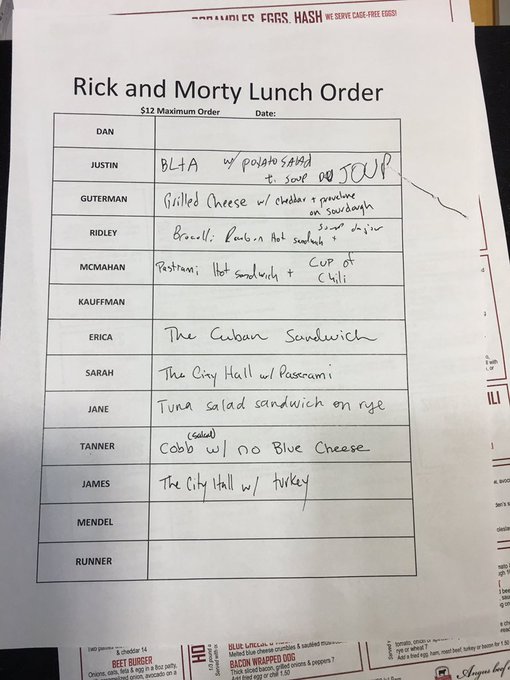 EGGS, HASH WE SERVE CAGE-FREE EGGS!
Rick and Morty Lunch Order
$12 Maximum Order Date:
DAN
JUSTIN BLTA w/ potato SALAD
t. soup SOUP
GUTERMAN Grilled Cheese w/ cheddar + provolone
on sourdough
RIDLEY Hot sandwich +
MCMAHAN Pastrami Hot sandwich + Cup of
Chili
KAUFFMAN
ERICA The Cuban Sandwich
SARAH The City Hall w/ Pastrami
JANE Tuna salad sandwich on rye
TANNER (salad)
Cobb w/ no Blue Cheese
JAMES The City Hall w/ turkey
MENDEL
RUNNER
& cheddar 14
BEET BURGER
Onions, oats, feta & egg in a 8oz patty,
onion, avocado on a
Melted blue cheese crumbles & sautéed
BACON WRAPPED DOG
Thick sliced bacon, grilled onions & peppers 7
Add fried egg or chili 1.50
rye or wheat 7
Add a fried egg, ham, roast beef, turkey or bacon for 1.50
Angus beef